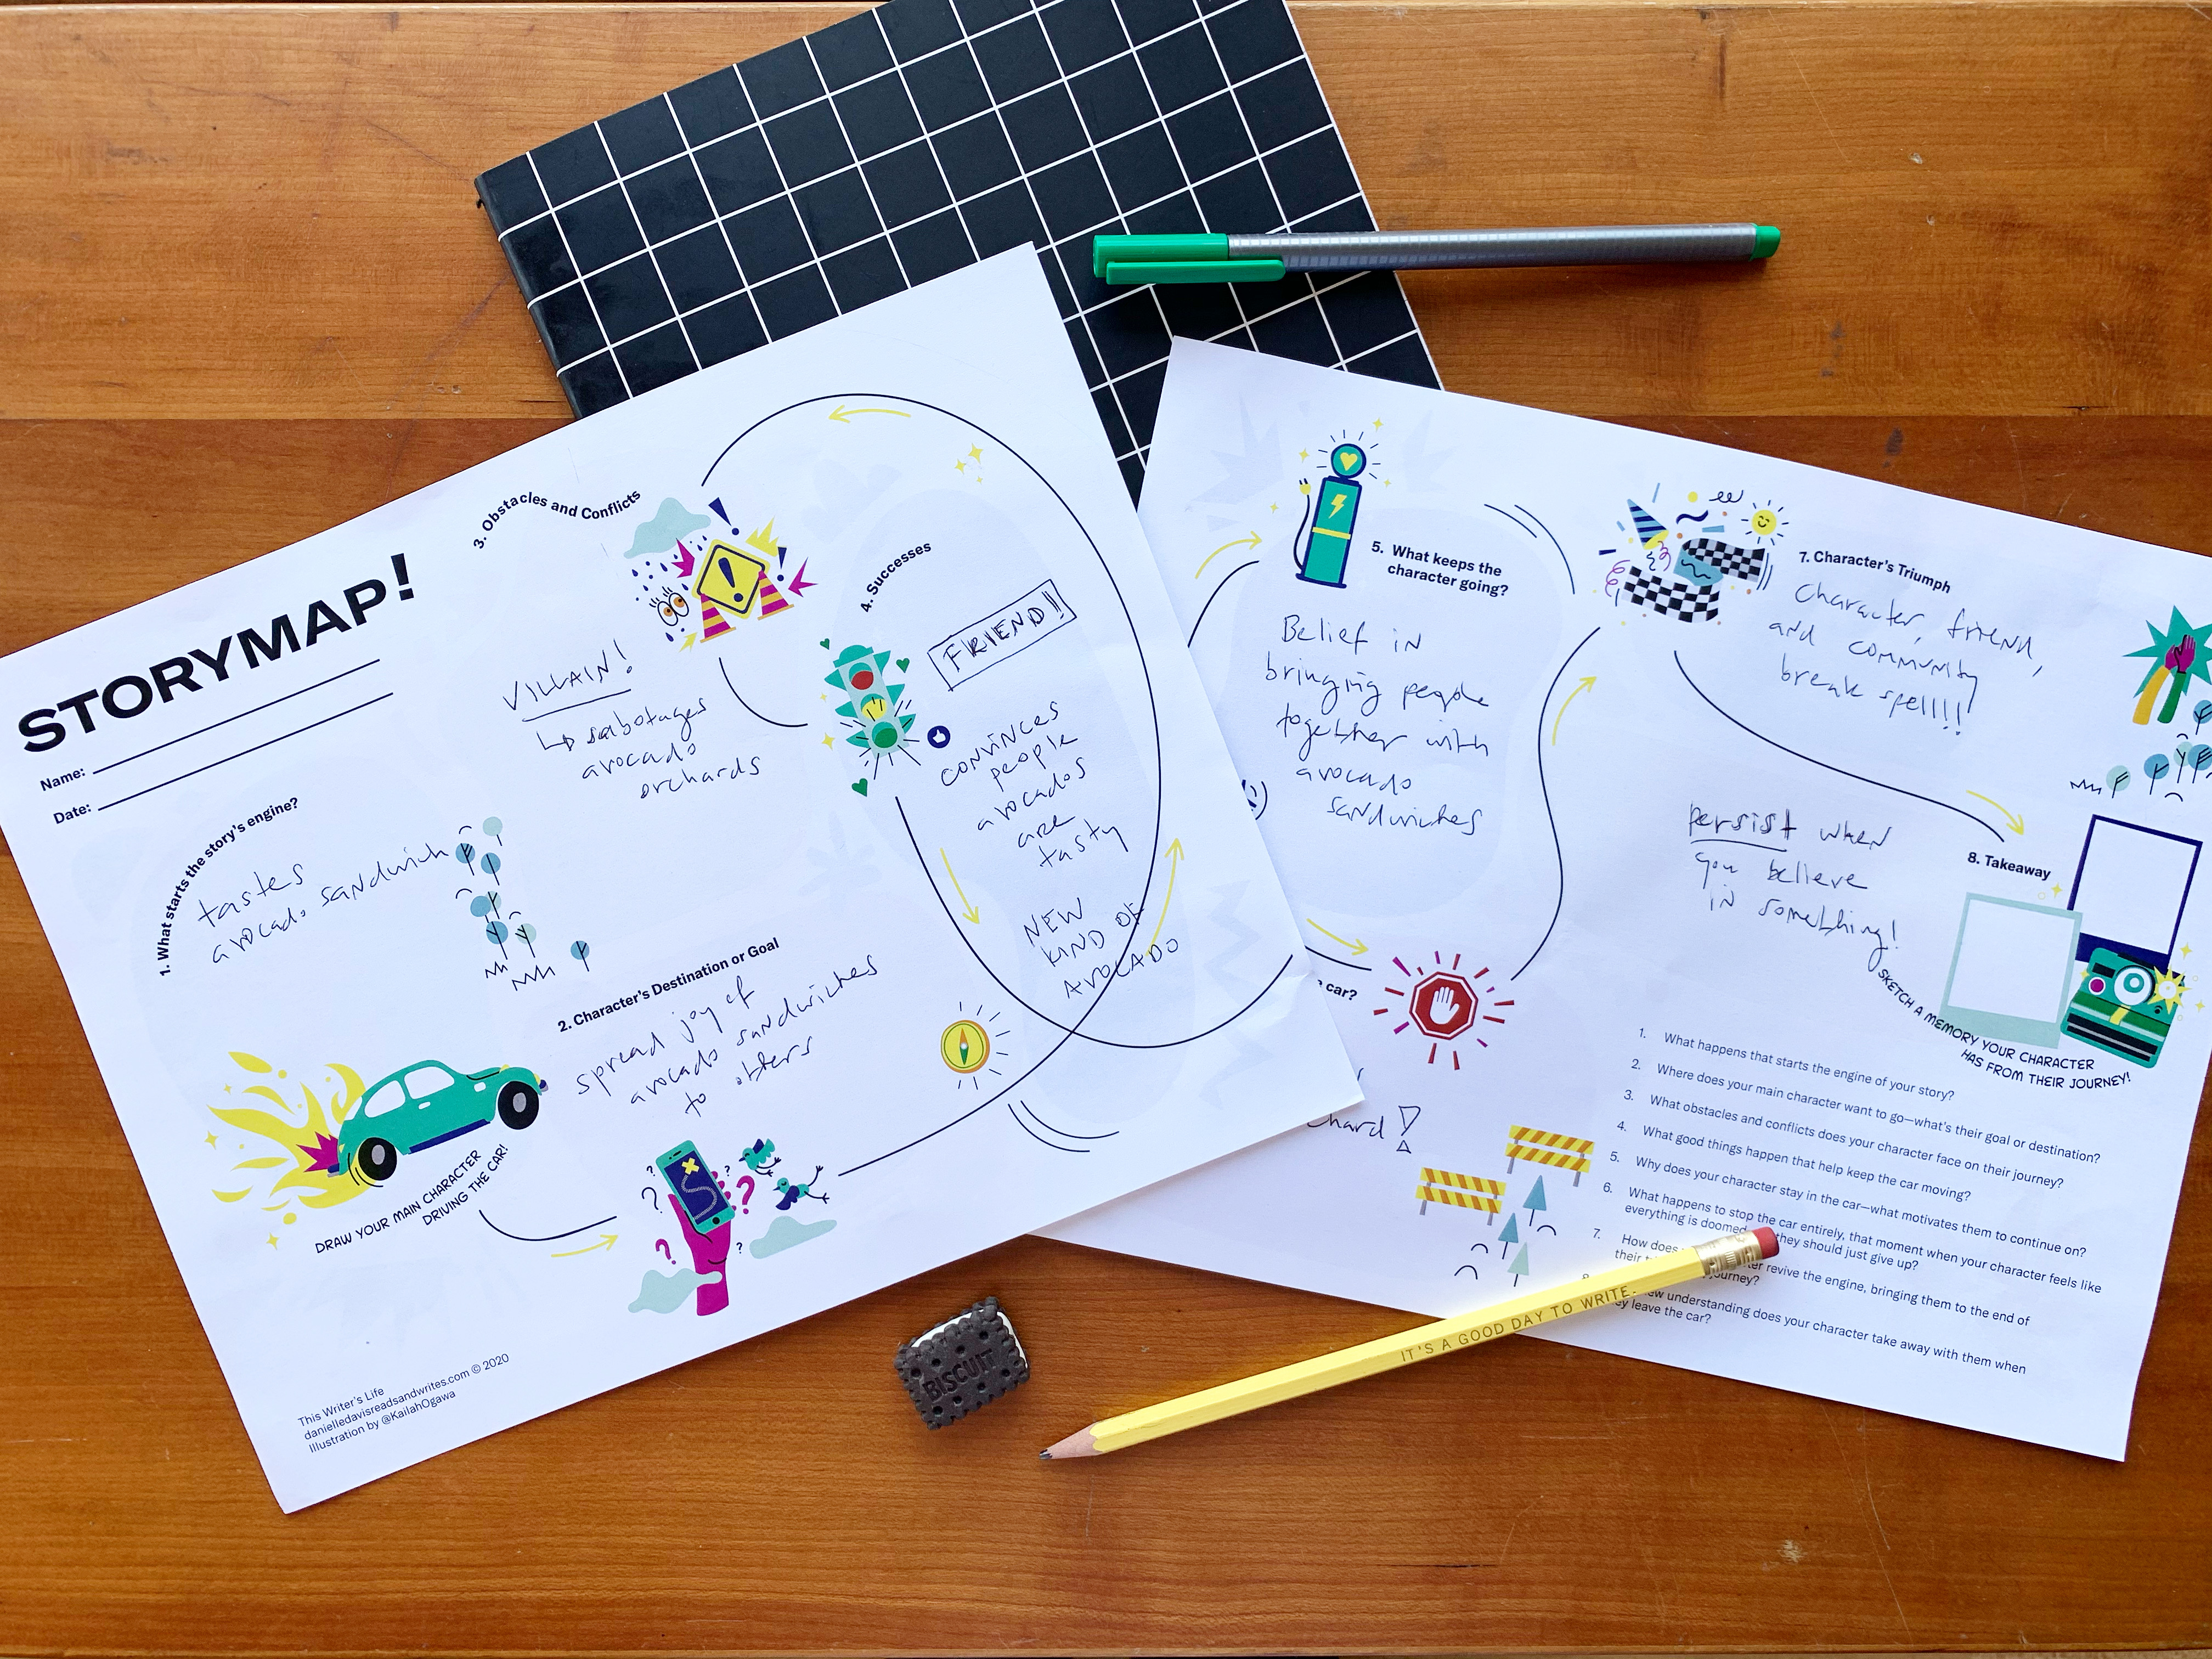 STORYMAP!
Name:
Date:
1. What starts the story's engine?
tastes
avocado sandwich
DRAW YOUR MAIN CHARACTER
DRIVING THE CAR!
2. Character's Destination or Goal
spread joy of
avocado sandwiches
to others
3. Obstacles and Conflicts
VILLAIN!
↳ sabotages
avocado
orchards
4. Successes
FRIEND!!
CONVINCES
people
avocados
are
tasty
NEW
KIND OF
AVOCADO
This Writer's Life
danielledavisreadsandwrites.com © 2020
Illustration by @KailahOgawa
5. What keeps the
character going?
Belief in
bringing people
together with
avocado
sandwiches
car?
hard!
7. Character's Triumph
Character, friend,
and community
break spell!!!
8. Takeaway
persist when
you believe
in something!
SKETCH A MEMORY YOUR CHARACTER
HAS FROM THEIR JOURNEY!
1. What happens that starts the engine of your story?
2. Where does your main character want to go—what's their goal or destination?
3. What obstacles and conflicts does your character face on their journey?
4. What good things happen that help keep the car moving?
5. Why does your character stay in the car—what motivates them to continue on?
6. What happens to stop the car entirely, that moment when your character feels like
everything is doomed they should just give up?
7. How does revive the engine, bringing them to the end of
their journey?
understanding does your character take away with them when
leave the car?
IT'S A GOOD DAY TO WRITE.
BISCUIT